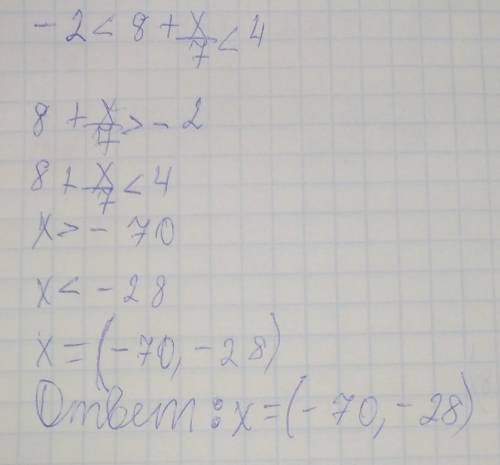 -2 < 8 + x/7 < 4
8 + x/7 > -2
8 + x/7 < 4
x > -70
x < -28
x = (-70, -28)
Ответ: x = (-70, -28)